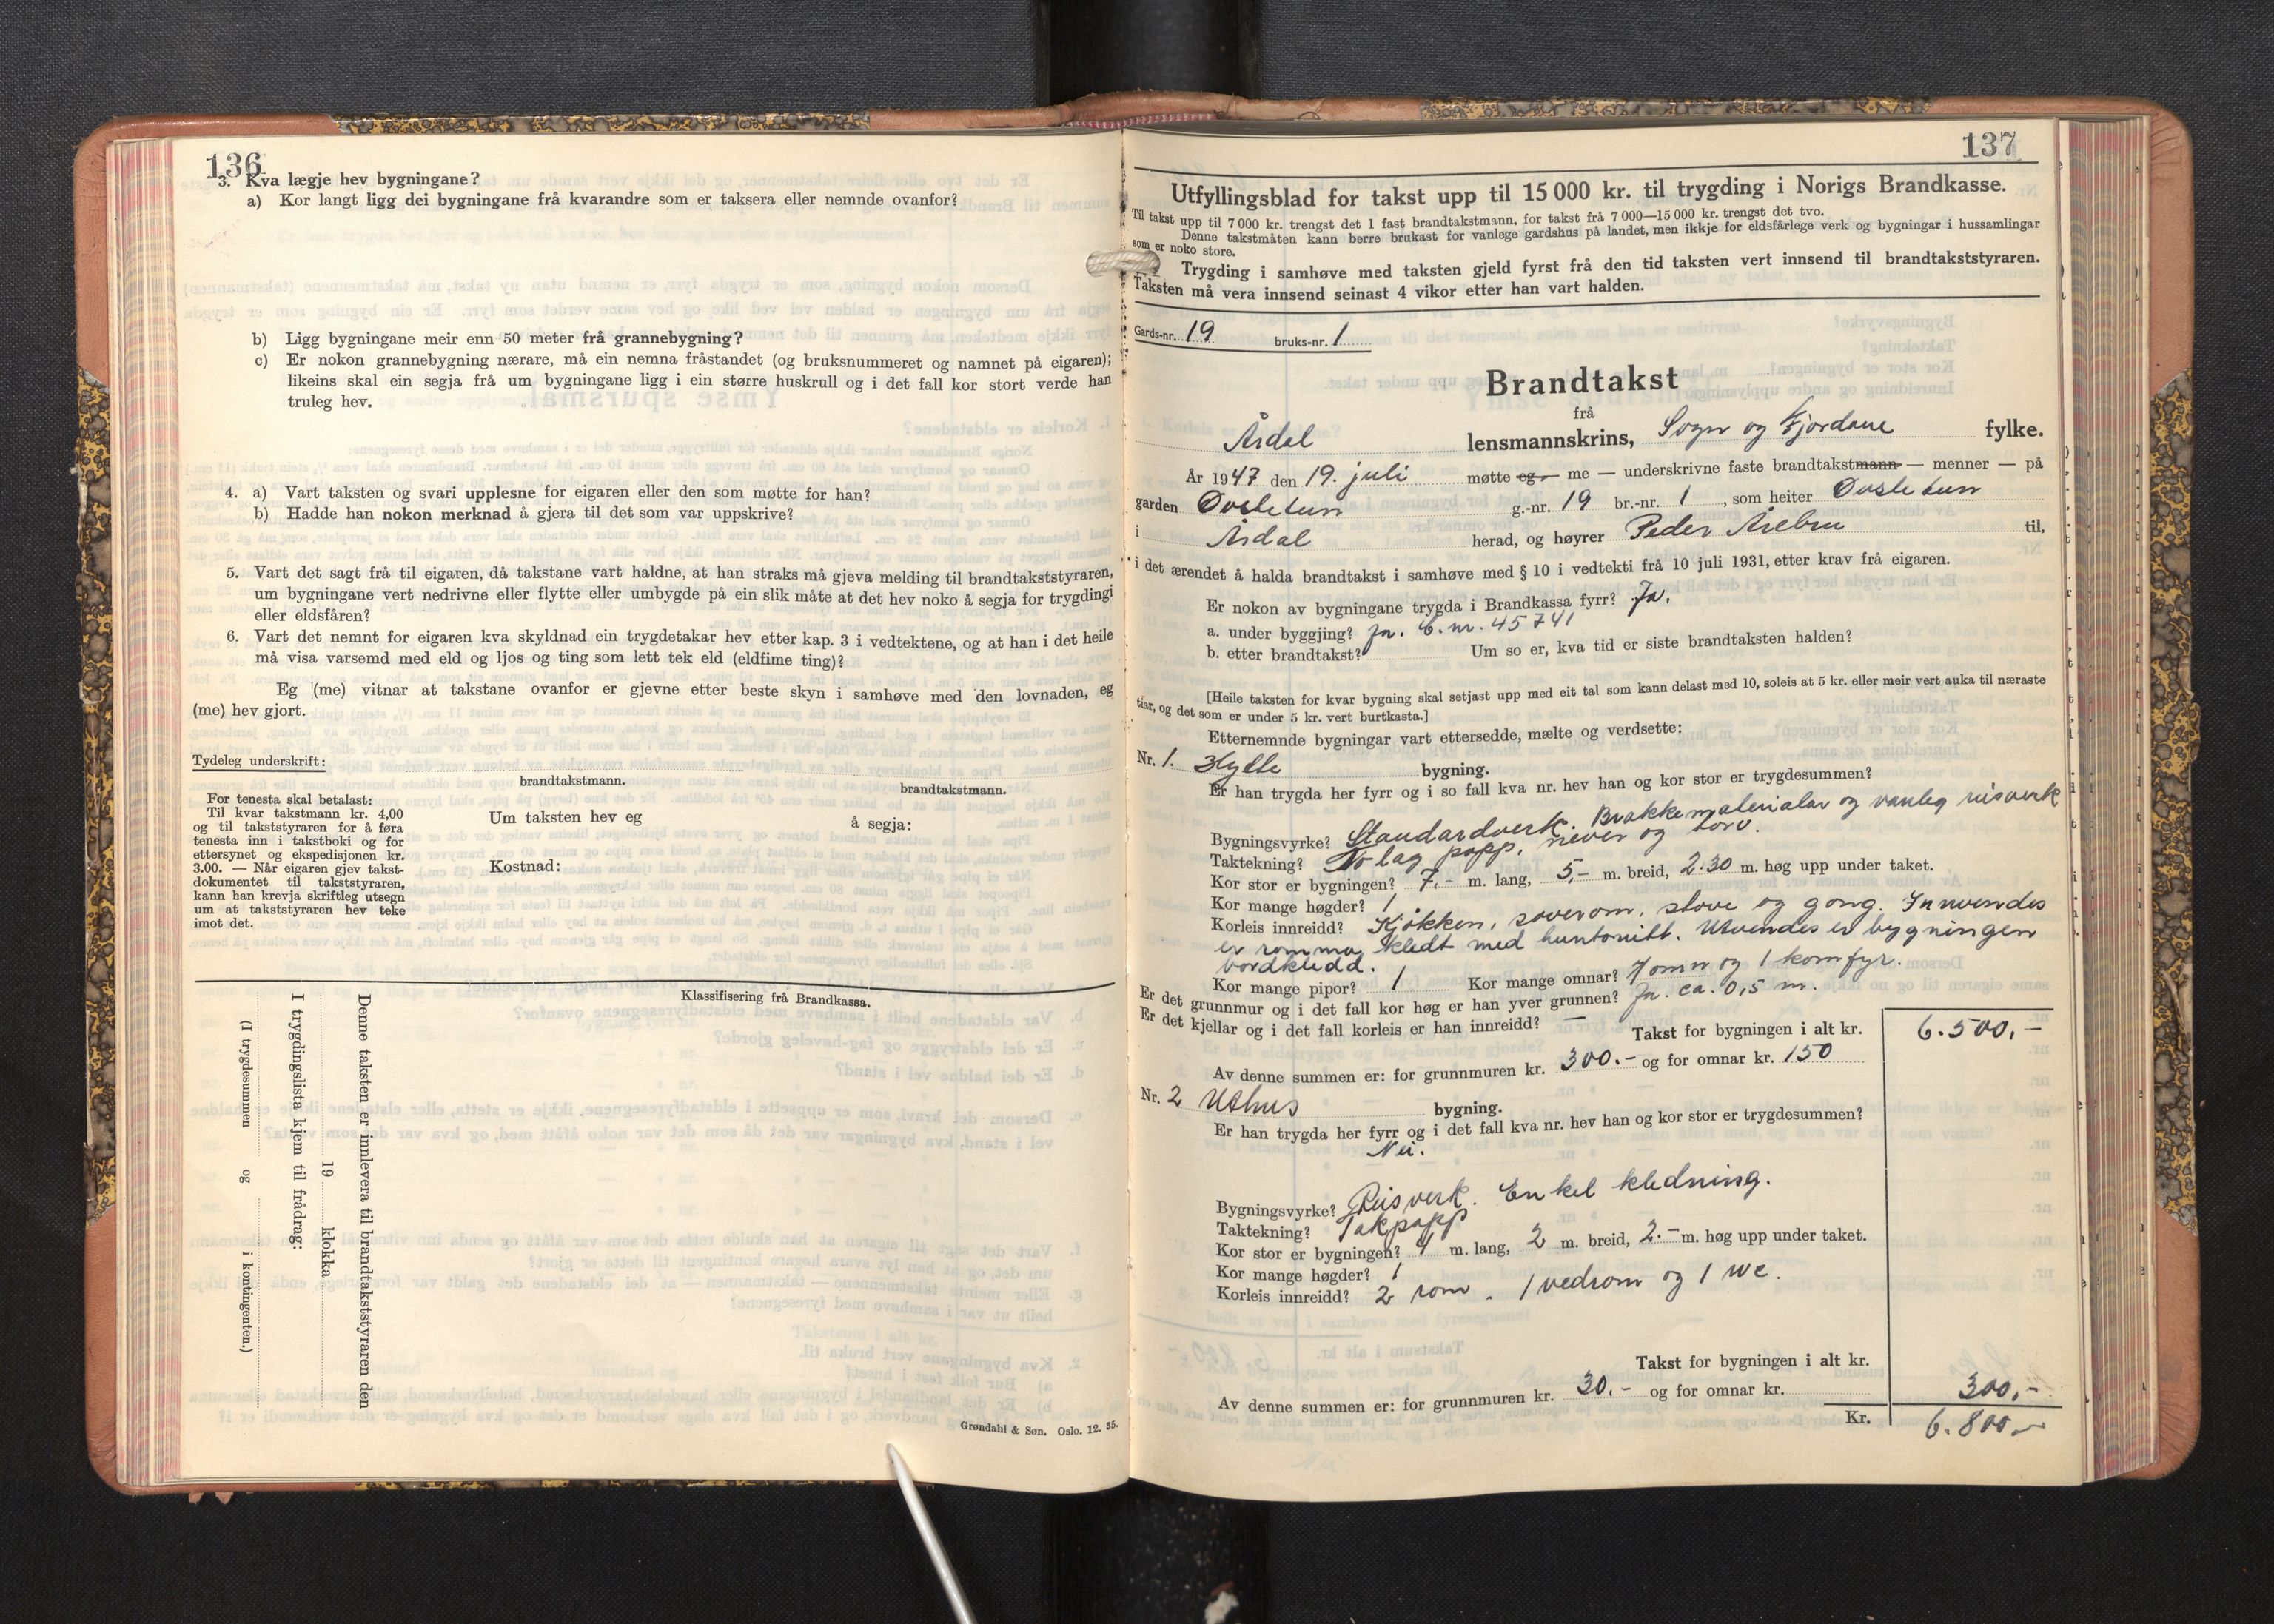 136
3. Kva lægje hev bygningane?
a) Kor langt ligg dei bygningane frå kvarandre som er taksera eller nemnde ovanfor?
b) Ligg bygningane meir enn 50 meter frå grannebygning?
c) Er nokon grannebygning nærare, må ein nemna fråstandet (og bruksnummeret og namnet på eigaren);
likeins skal ein segja frå um bygningane ligg i ein større huskrull og i det fall kor stort verde han
truleg hev.
4. a) Vart taksten og svari upplesne for eigaren eller den som møtte for han?
b) Hadde han nokon merknad å gjera til det som var uppskrive?
5. Vart det sagt frå til eigaren, då takstane vart haldne, at han straks må gjeva melding til brandtakststyraren,
um bygningane vert nedrivne eller flytte eller umbygde på ein slik måte at det hev noko å segja for trygdingi
eller eldsfåren?
6. Vart det nemnt for eigaren kva skyldnad ein trygdetakar hev etter kap. 3 i vedtektene, og at han i det heile
må visa varsemd med eld og ljos og ting som lett tek eld (eldfime ting)?
Eg (me) vitnar at takstane ovanfor er gjevne etter beste skyn i samhøve med den lovnaden, eg
(me) hev gjort.
Tydeleg underskrift:
brandtakstmann. brandtakstmann.
For tenesta skal betalast:
Til kvar takstmann kr. 4,00
og til takststyraren for å føra
tenesta inn i takstboki og for
ettersynet og ekspedisjonen kr.
3.00. — Når eigaren gjev takst-
dokumentet til takststyraren,
kann han krevja skriftleg utsegn
um at takststyraren hev teke
imot det.
Um taksten hev eg å segja:
Kostnad:
Klassifisering frå Brandkassa.
Denne taksten er innlevera til brandtakststyraren den
19 klokka
I trygdingslista kjem til frådrag:
(I trygdesummen og i kontingenten.)
Grøndahl & Søn. Oslo. 12. 35.
137
Utfyllingsblad for takst upp til 15 000 kr. til trygding i Norigs Brandkasse.
Til takst upp til 7 000 kr. trengst det 1 fast brandtakstmann, for takst frå 7 000—15 000 kr. trengst det tvo.
Denne takstmåten kann berre brukast for vanlege gardshus på landet, men ikkje for eldsfårlege verk og bygningar i hussamlingar
som er noko store.
Trygding i samhøve med taksten gjeld fyrst frå den tid taksten vert innsend til brandtakststyraren.
Taksten må vera innsend seinast 4 vikor etter han vart halden.
Gards-nr. 19 bruks-nr. 1
Brandtakst
frå
Årdal lensmannskrins, Sogn og Fjordane fylke.
År 1947 den 19. juli møtte eg — me — underskrivne faste brandtakstmann — menner — på
garden Øvstetun g.-nr. 19 br.-nr. 1, som heiter Øvstetun
i Årdal herad, og høyrer Peder Årebru til,
i det ærendet å halda brandtakst i samhøve med § 10 i vedtekti frå 10 juli 1931, etter krav frå eigaren.
Er nokon av bygningane trygda i Brandkassa fyrr? Ja.
a. under byggjing? Ja. C.nr. 45741
b. etter brandtakst? Um so er, kva tid er siste brandtaksten halden?
[Heile taksten for kvar bygning skal setjast upp med eit tal som kann delast med 10, soleis at 5 kr. eller meir vert auka til næraste
tiar, og det som er under 5 kr. vert burtkasta.]
Etternemnde bygningar vart ettersedde, mælte og verdsette:
Nr. 1. Hytte bygning.
Er han trygda her fyrr og i so fall kva nr. hev han og kor stor er trygdesummen?
Bygningsvyrke? Standardverk. Brakkematerialar og vanleg reisverk
Taktekning? To lag papp, never og torv.
Kor stor er bygningen? 7,- m. lang, 5,- m. breid, 2.30 m. høg upp under taket.
Kor mange høgder? 1
Korleis innreidd? Kjøkken, soverom, stove og gong. Innvendes
er romma kledt med huntonitt. Utvendes er bygningen
bordkledd.
Kor mange pipor? 1 Kor mange omnar? 1 omn og 1 komfyr.
Er det grunnmur og i det fall kor høg er han yver grunnen? Ja. ca. 0,5 m.
Er det kjellar og i det fall korleis er han innreidd? —
Takst for bygningen i alt kr. 6.500,-
Av denne summen er: for grunnmuren kr. 300.- og for omnar kr. 150
Nr. 2 Uthus bygning.
Er han trygda her fyrr og i det fall kva nr. hev han og kor stor er trygdesummen?
Nei.
Bygningsvyrke? Reisverk. Enkel kledning.
Taktekning? Takpapp
Kor stor er bygningen? 4 m. lang, 2 m. breid, 2.- m. høg upp under taket.
Kor mange høgder? 1
Korleis innreidd? 2 rom. 1 vedrom og 1 wc.
Takst for bygningen i alt kr. 300,-
Av denne summen er: for grunnmuren kr. 30.- og for omnar kr.
Kr. 6.800,-